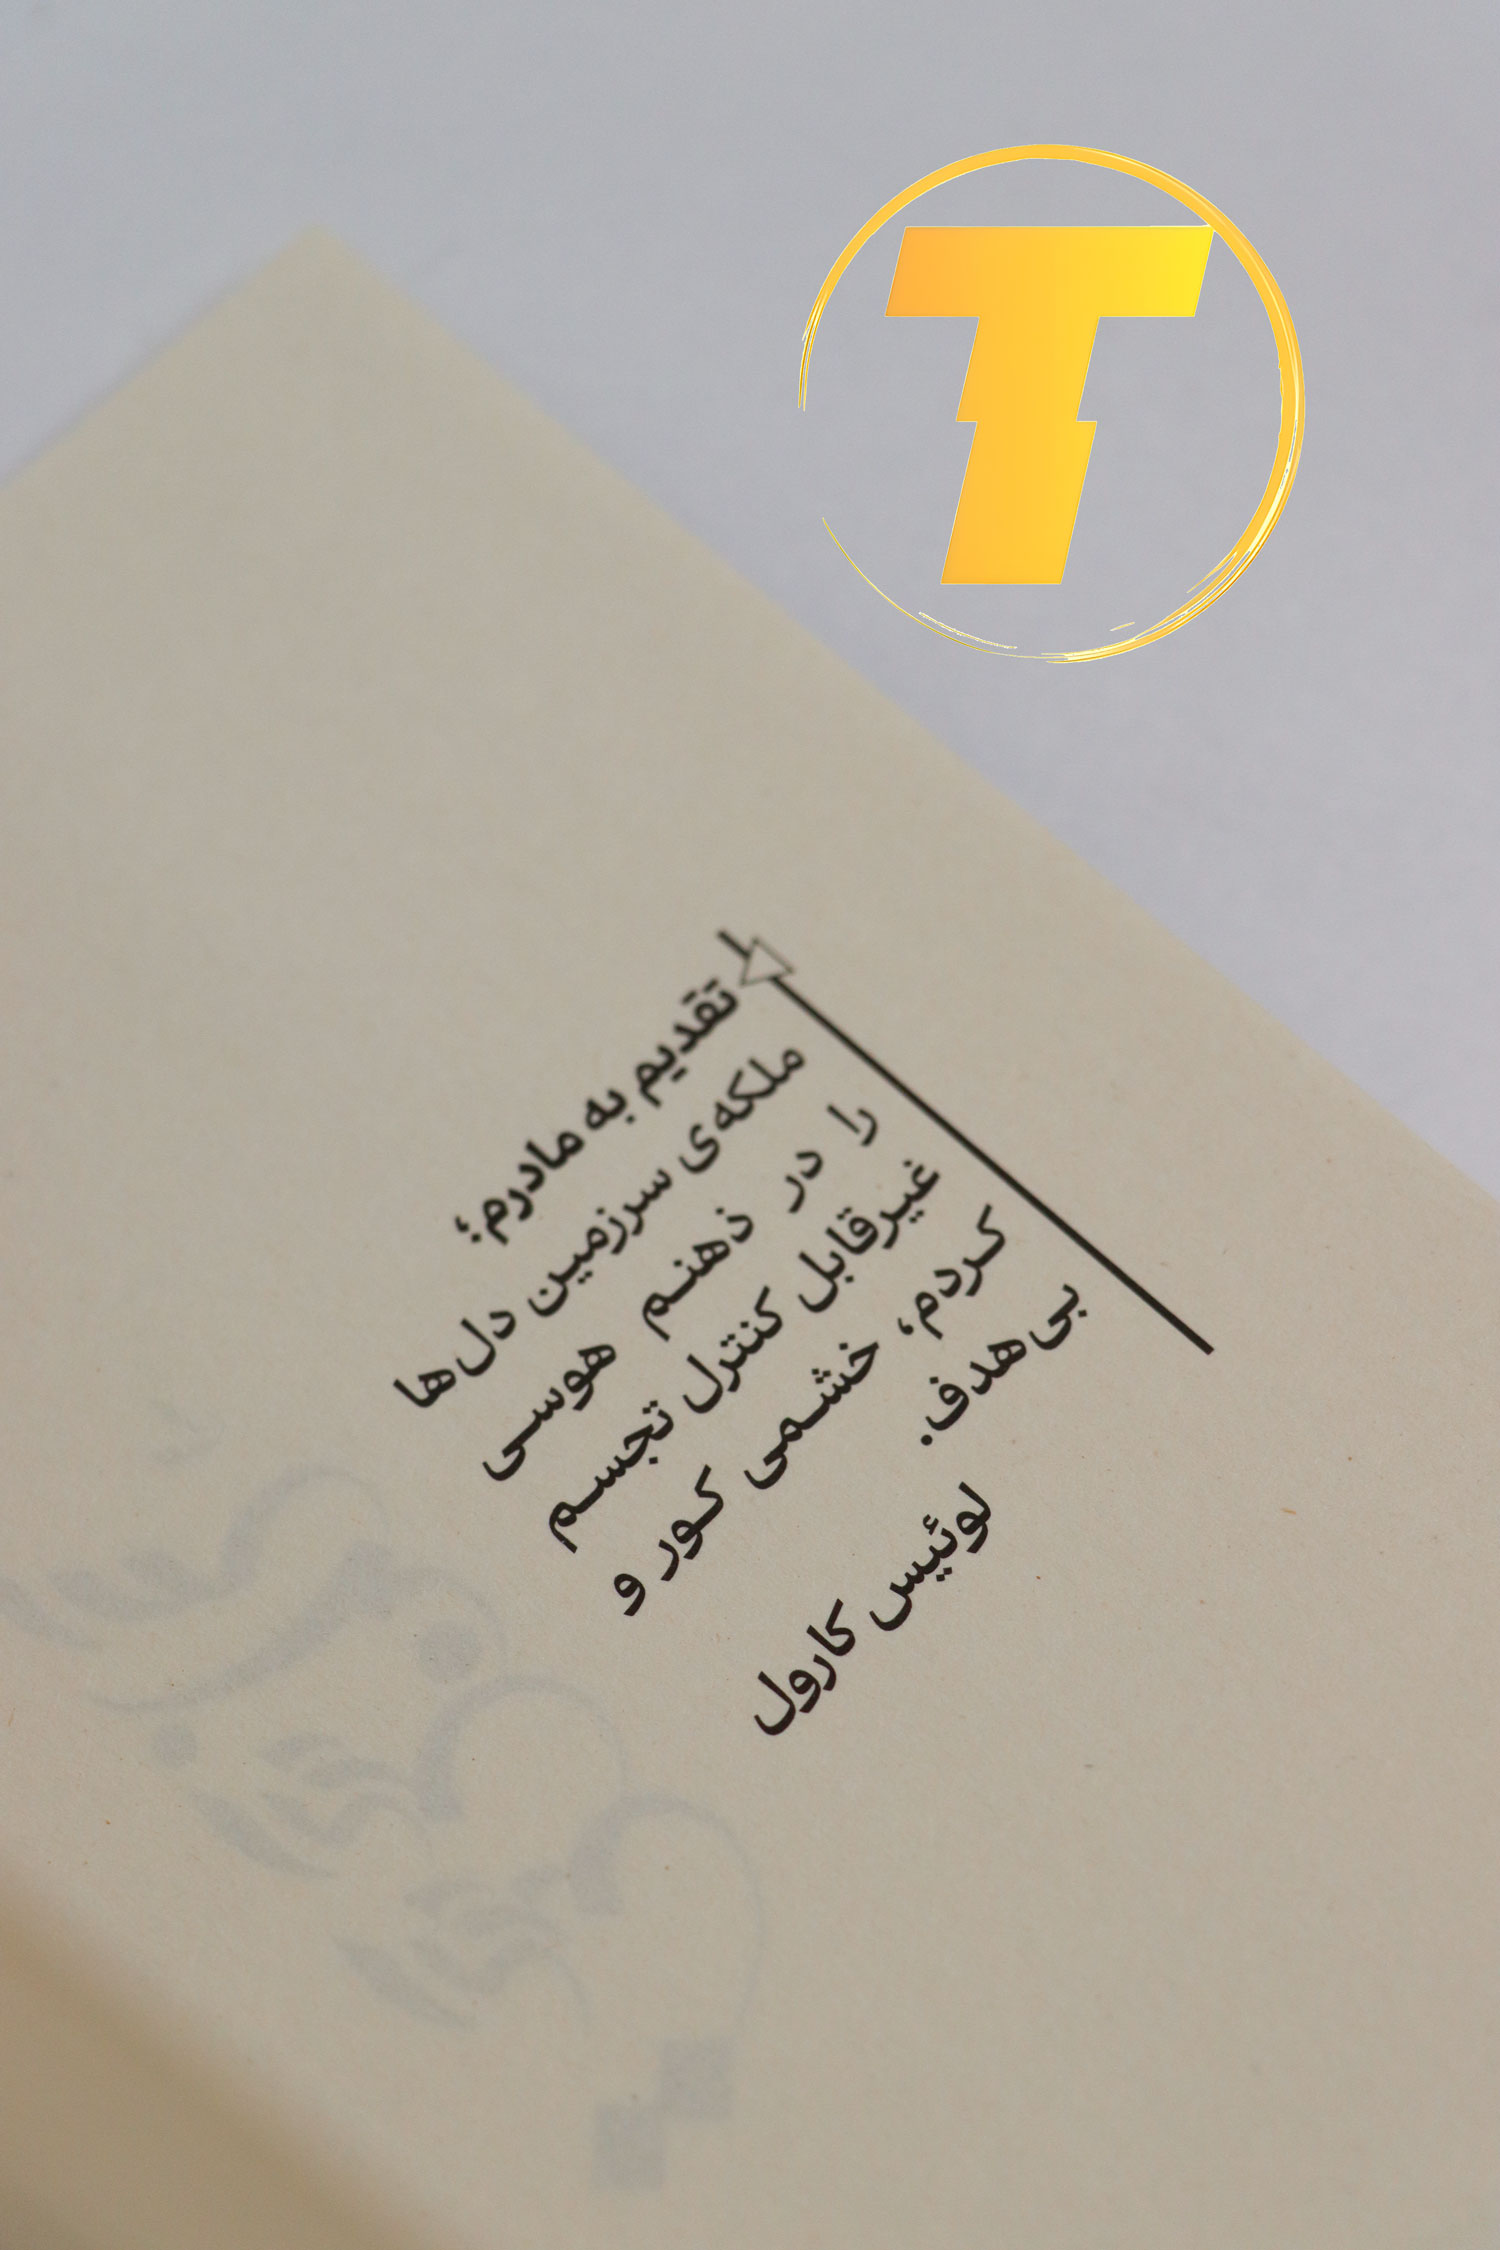 T
تقدیم به مادرم؛
ملکه‌ی سرزمین دل‌ها
را در ذهنم هوسی
غیرقابل کنترل تجسم
کردم، خشمی کور و
بی‌هدف.
لوئیس کارول